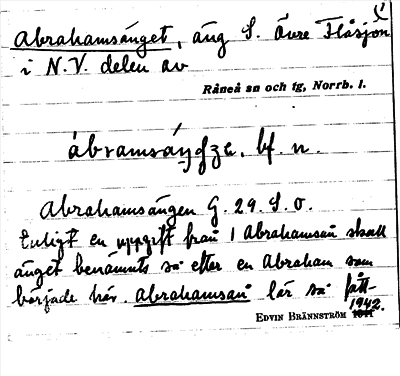 Abrahamsänget, äng S. Övre Flåsjön
i N.V. delen av
Råneå sn och tg, Norrb. l.
ábramsáŋʒe, bf. n.
Abrahamsängen G. 29. S. O.
Enligt en uppgift från 1 Abrahamsån skall
änget benämnts så efter en Abraham som
började här. Abrahamsån lär så fått
EDVIN BRÄNNSTRÖM 1942.